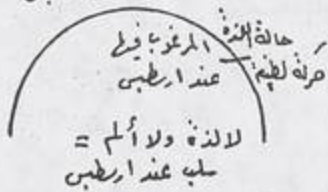 حالة اللذة
حركة لطيفة
المرغوب فيها
عند ارسطبس
لا لذة ولا ألم =
سلب عند ارسطبس